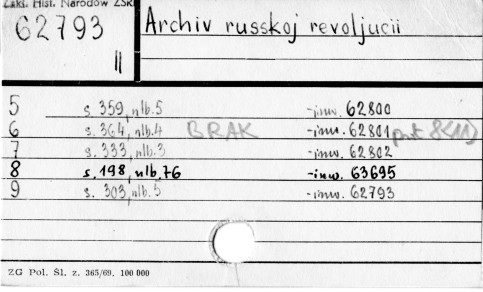 Zakł. Hist. Narodów ZSRR
62793
II
Archiv russkoj revoljucii
5 s. 359, nlb. 5 -inw. 62800
6 s. 364, nlb. 4 BRAK -inw. 62801
7 s. 333, nlb. 3 -inw. 62802
8 s. 198, nlb. 76 -inw. 63695
9 s. 303, nlb. 5 -inw. 62793
ZG Pol. Śl. z. 365/69. 100 000